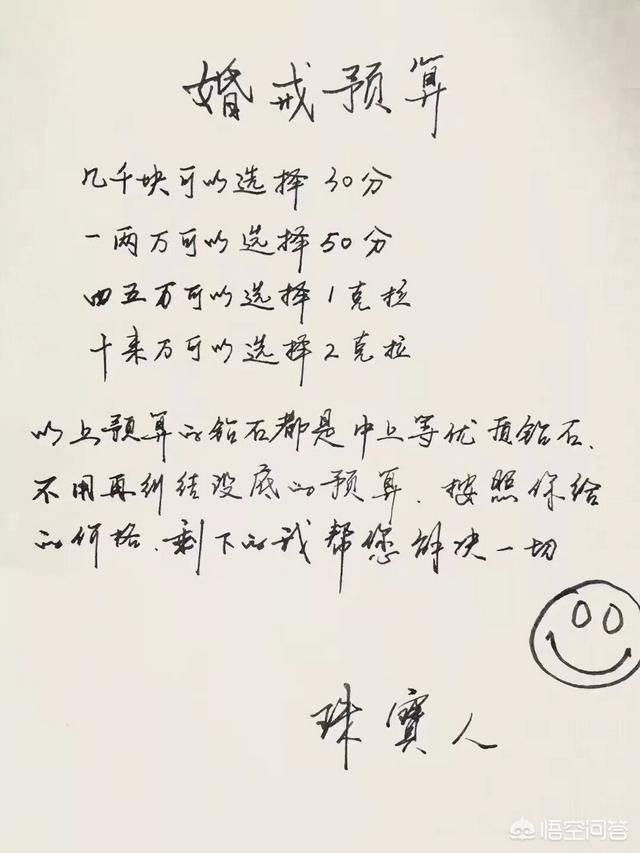 婚戒预算
几千块可以选择30分
一两万可以选择50分
四五万可以选择1克拉
十来万可以选择2克拉
以上预算的钻石都是中上等优质钻石.
不用再纠结没底的预算.按照你给
的价格.剩下的我帮您解决一切
珠寶人
悟空问答